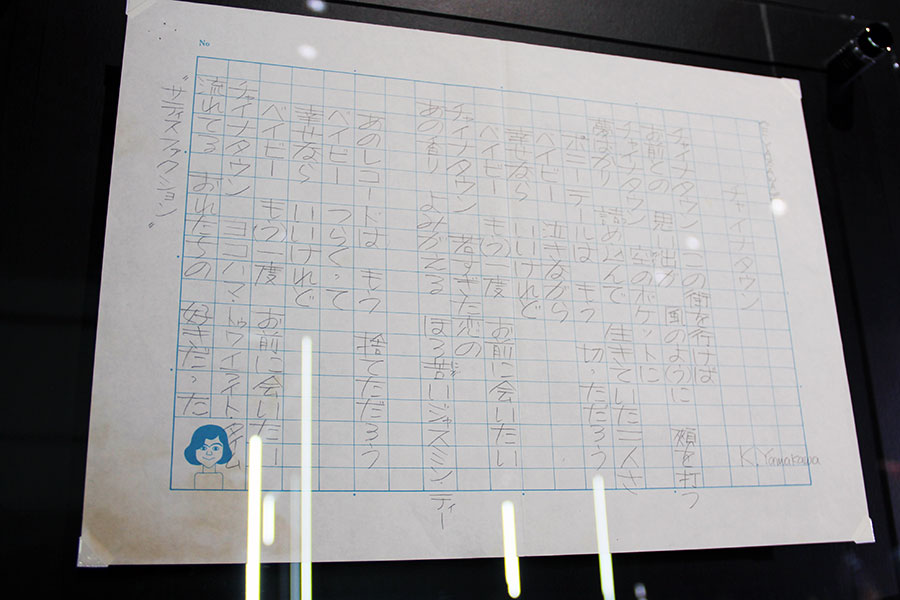 No
チャイナタウン
K. Yamakawa
チャイナタウン この街を行けば
お前との 思い出が 風のように 頬を打つ
チャイナタウン 空のポケットに
夢ばかり 詰め込んで 生きていた二人さ
ポニーテールは もう 切っただろう
ベイビー 泣きながら
幸せなら いいけれど
ベイビー もう一度 お前に会いたい
チャイナタウン 若すぎた恋の
あの香り よみがえる ほろ苦いジャスミンティー
あのレコードは もう 捨てただろう
ベイビー つらくって
幸せなら いいけれど
ベイビー もう一度 お前に会いたい
チャイナタウン ヨコハマ トゥワイライトタイム
流れてる おれたちの 好きだった
"サティスファクション"